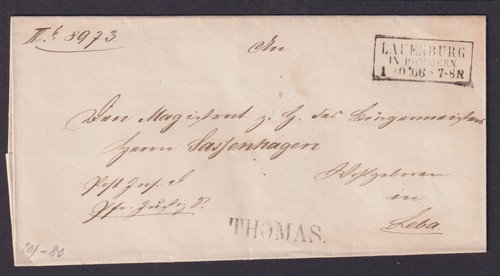 II. b 8973
An
LAUENBURG
IN POMMERN
1 10 66 7-8 N
Den Magistrat z. H. des Bürgermeisters
Herrn Sassenhagen
Wohlgeboren
in
Leba
THOMAS.